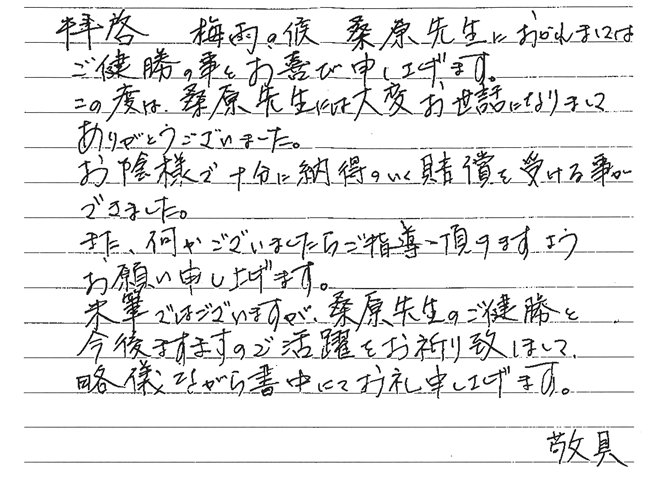 拝啓　梅雨の候　桑原先生におかれましては
ご健勝の事とお喜び申し上げます。
この度は、桑原先生には大変お世話になりまして
ありがとうございました。
お陰様で十分に納得のいく賠償を受ける事が
できました。
また、何かございましたらご指導頂けますよう
お願い申し上げます。
末筆ではございますが、桑原先生のご健勝と
今後ますますのご活躍をお祈り致しまして、
略儀ながら書中にてお礼申し上げます。
敬具